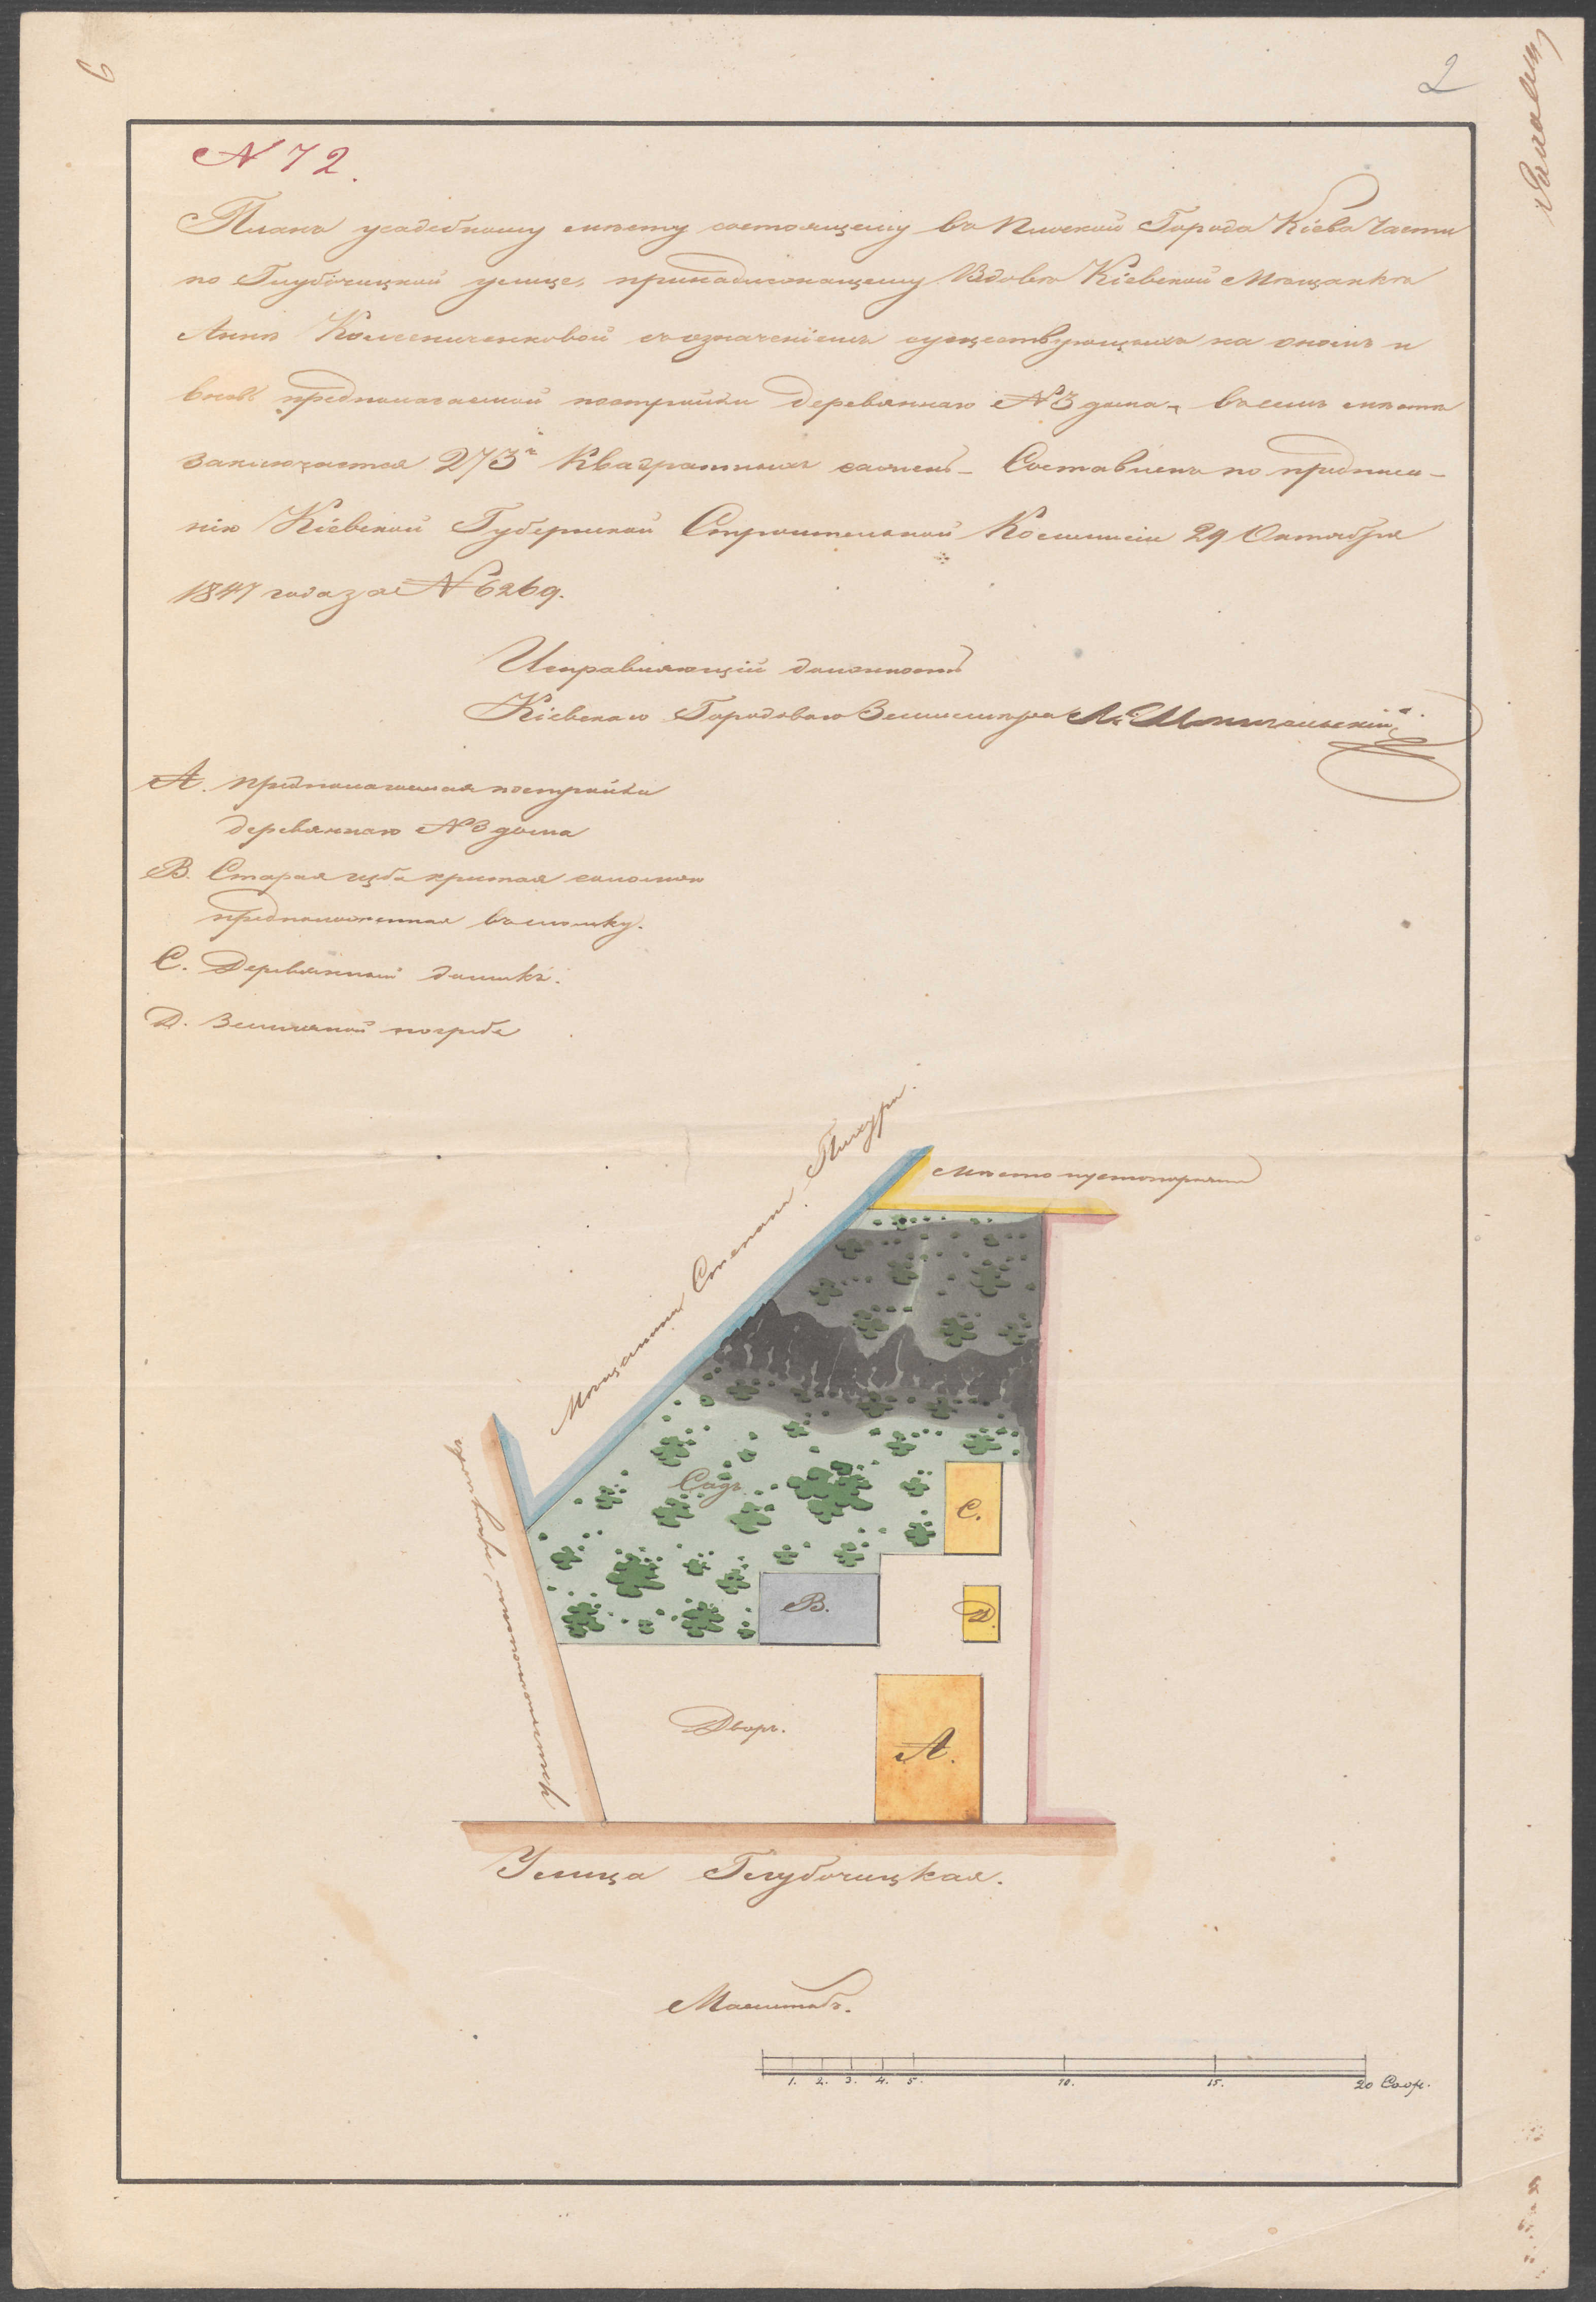 2
N 72.
Планъ усадебному мѣсту состоящему въ Плоской Города Кіева Части
по Глубочицкой улице, принадлежащему Вдовѣ Кіевской Мѣщанкѣ
Аннѣ съ означеніемъ существующихъ на ономъ и
вновь предполагаемой постройки деревяннаго N 3 дома, въ семъ мѣстѣ
заключается 273 Квадратныхъ сажень – Составленъ по предписа-
нію Кіевской Губернской Строительной Коммисіи 29 Октября
1847 года за N 6269.
Исправляющій должность
Кіевскаго Городоваго Землемѣра
А. предполагаемая постройка
деревяннаго N 3 дома
В. Старая изба крытая соломою
предположенная въ сломку.
С. Деревянный домикъ.
Д. Земляной погребъ
Мѣщанина Степана
Мѣсто пустопорожнее
Садъ
С.
В.
Д.
Дворъ.
А.
Улица Глубочицкая.
Масштабъ.
1. 2. 3. 4. 5. 10. 15. 20 Саж.